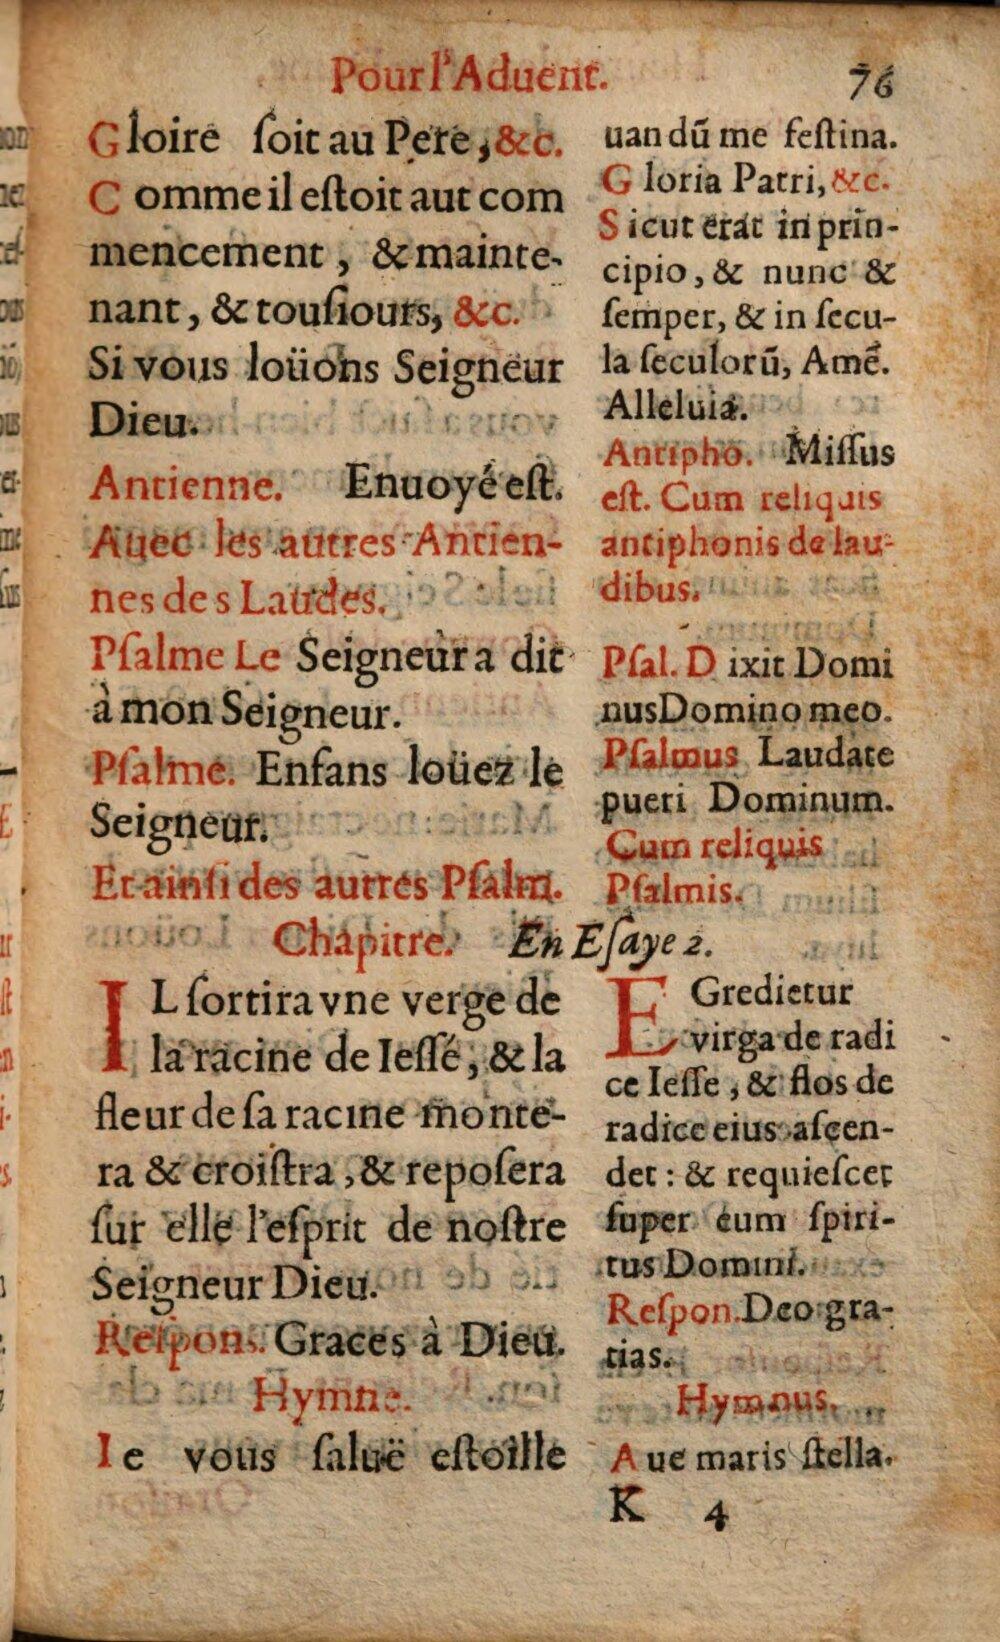 Pour l'Aduent. 76
Gloire ſoit au Pere, &c.
Comme il eſtoit aut com
mencement, & mainte-
nant, & touſiours, &c.
Si vous loüons Seigneur
Dieu.
Antienne. Enuoyé eſt.
Auec les autres Antien-
nes des Laudes.
Pſalme Le Seigneur a dit
à mon Seigneur.
Pſalme. Enfans loüez le
Seigneur.
Et ainſi des autres Pſalm.
uandū me feſtina.
Gloria Patri, &c.
Sicut erat in prin-
cipio, & nunc &
ſemper, & in ſecu-
la ſeculorū, Amē.
Alleluia.
Antipho. Miſſus
eſt. Cum reliquis
antiphonis de lau-
dibus.
Pſal. Dixit Domi
nus Domino meo.
Pſalmus Laudate
pueri Dominum.
Cum reliquis
Pſalmis.
Chapitre. En Eſaye 2.
IL ſortira vne verge de
la racine de Ieſſé, & la
fleur de ſa racine monte-
ra & croiſtra, & repoſera
ſur elle l'eſprit de noſtre
Seigneur Dieu.
Reſpons. Graces à Dieu.
Hymne.
Ie vous ſaluë eſtoille
EGredietur
virga de radi
ce Ieſſe, & flos de
radice eius aſcen-
det : & requieſcet
ſuper eum ſpiri-
tus Domini.
Reſpon. Deo gra-
tias.
Hymnus.
Aue maris ſtella.
K 4